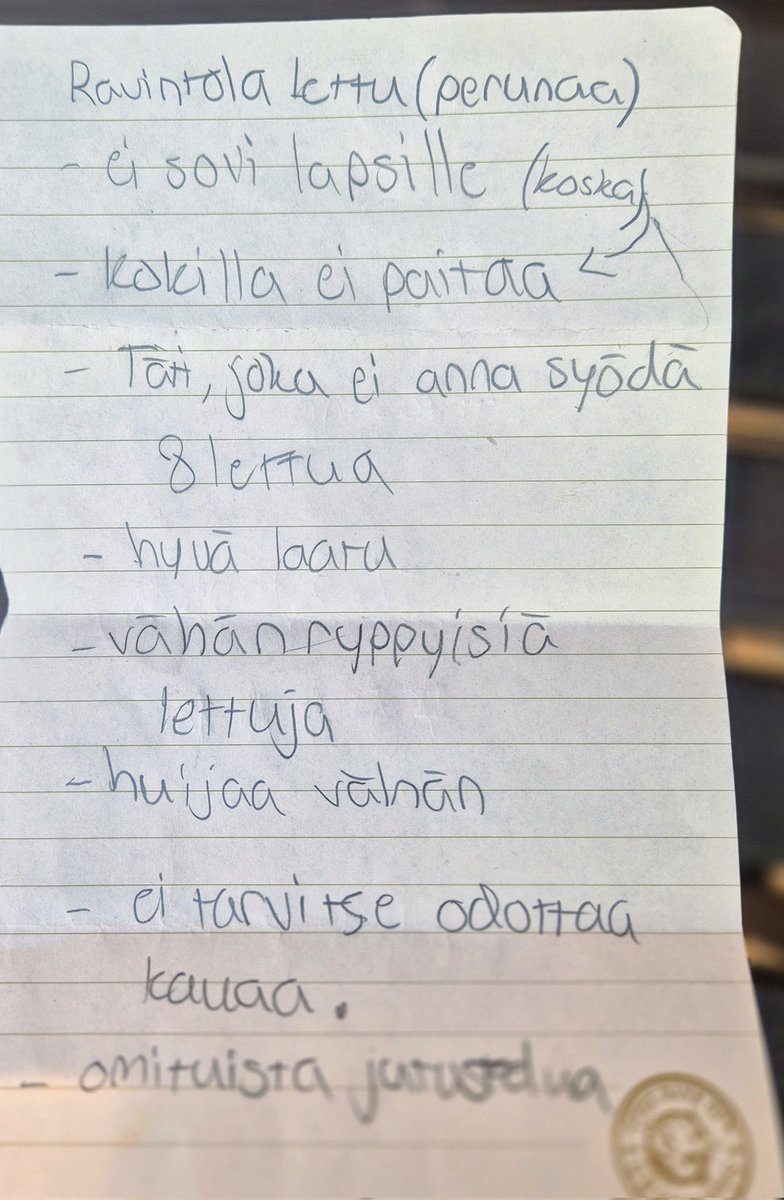 Ravintola lettu (perunaa)
- ei sovi lapsille (koska)
- kokilla ei paitaa
- Täti, joka ei anna syödä
8 lettua
- hyvä laatu
- vähän ryppyisiä
lettuja
- huijaa vähän
- ei tarvitse odottaa
kauaa.
- omituista